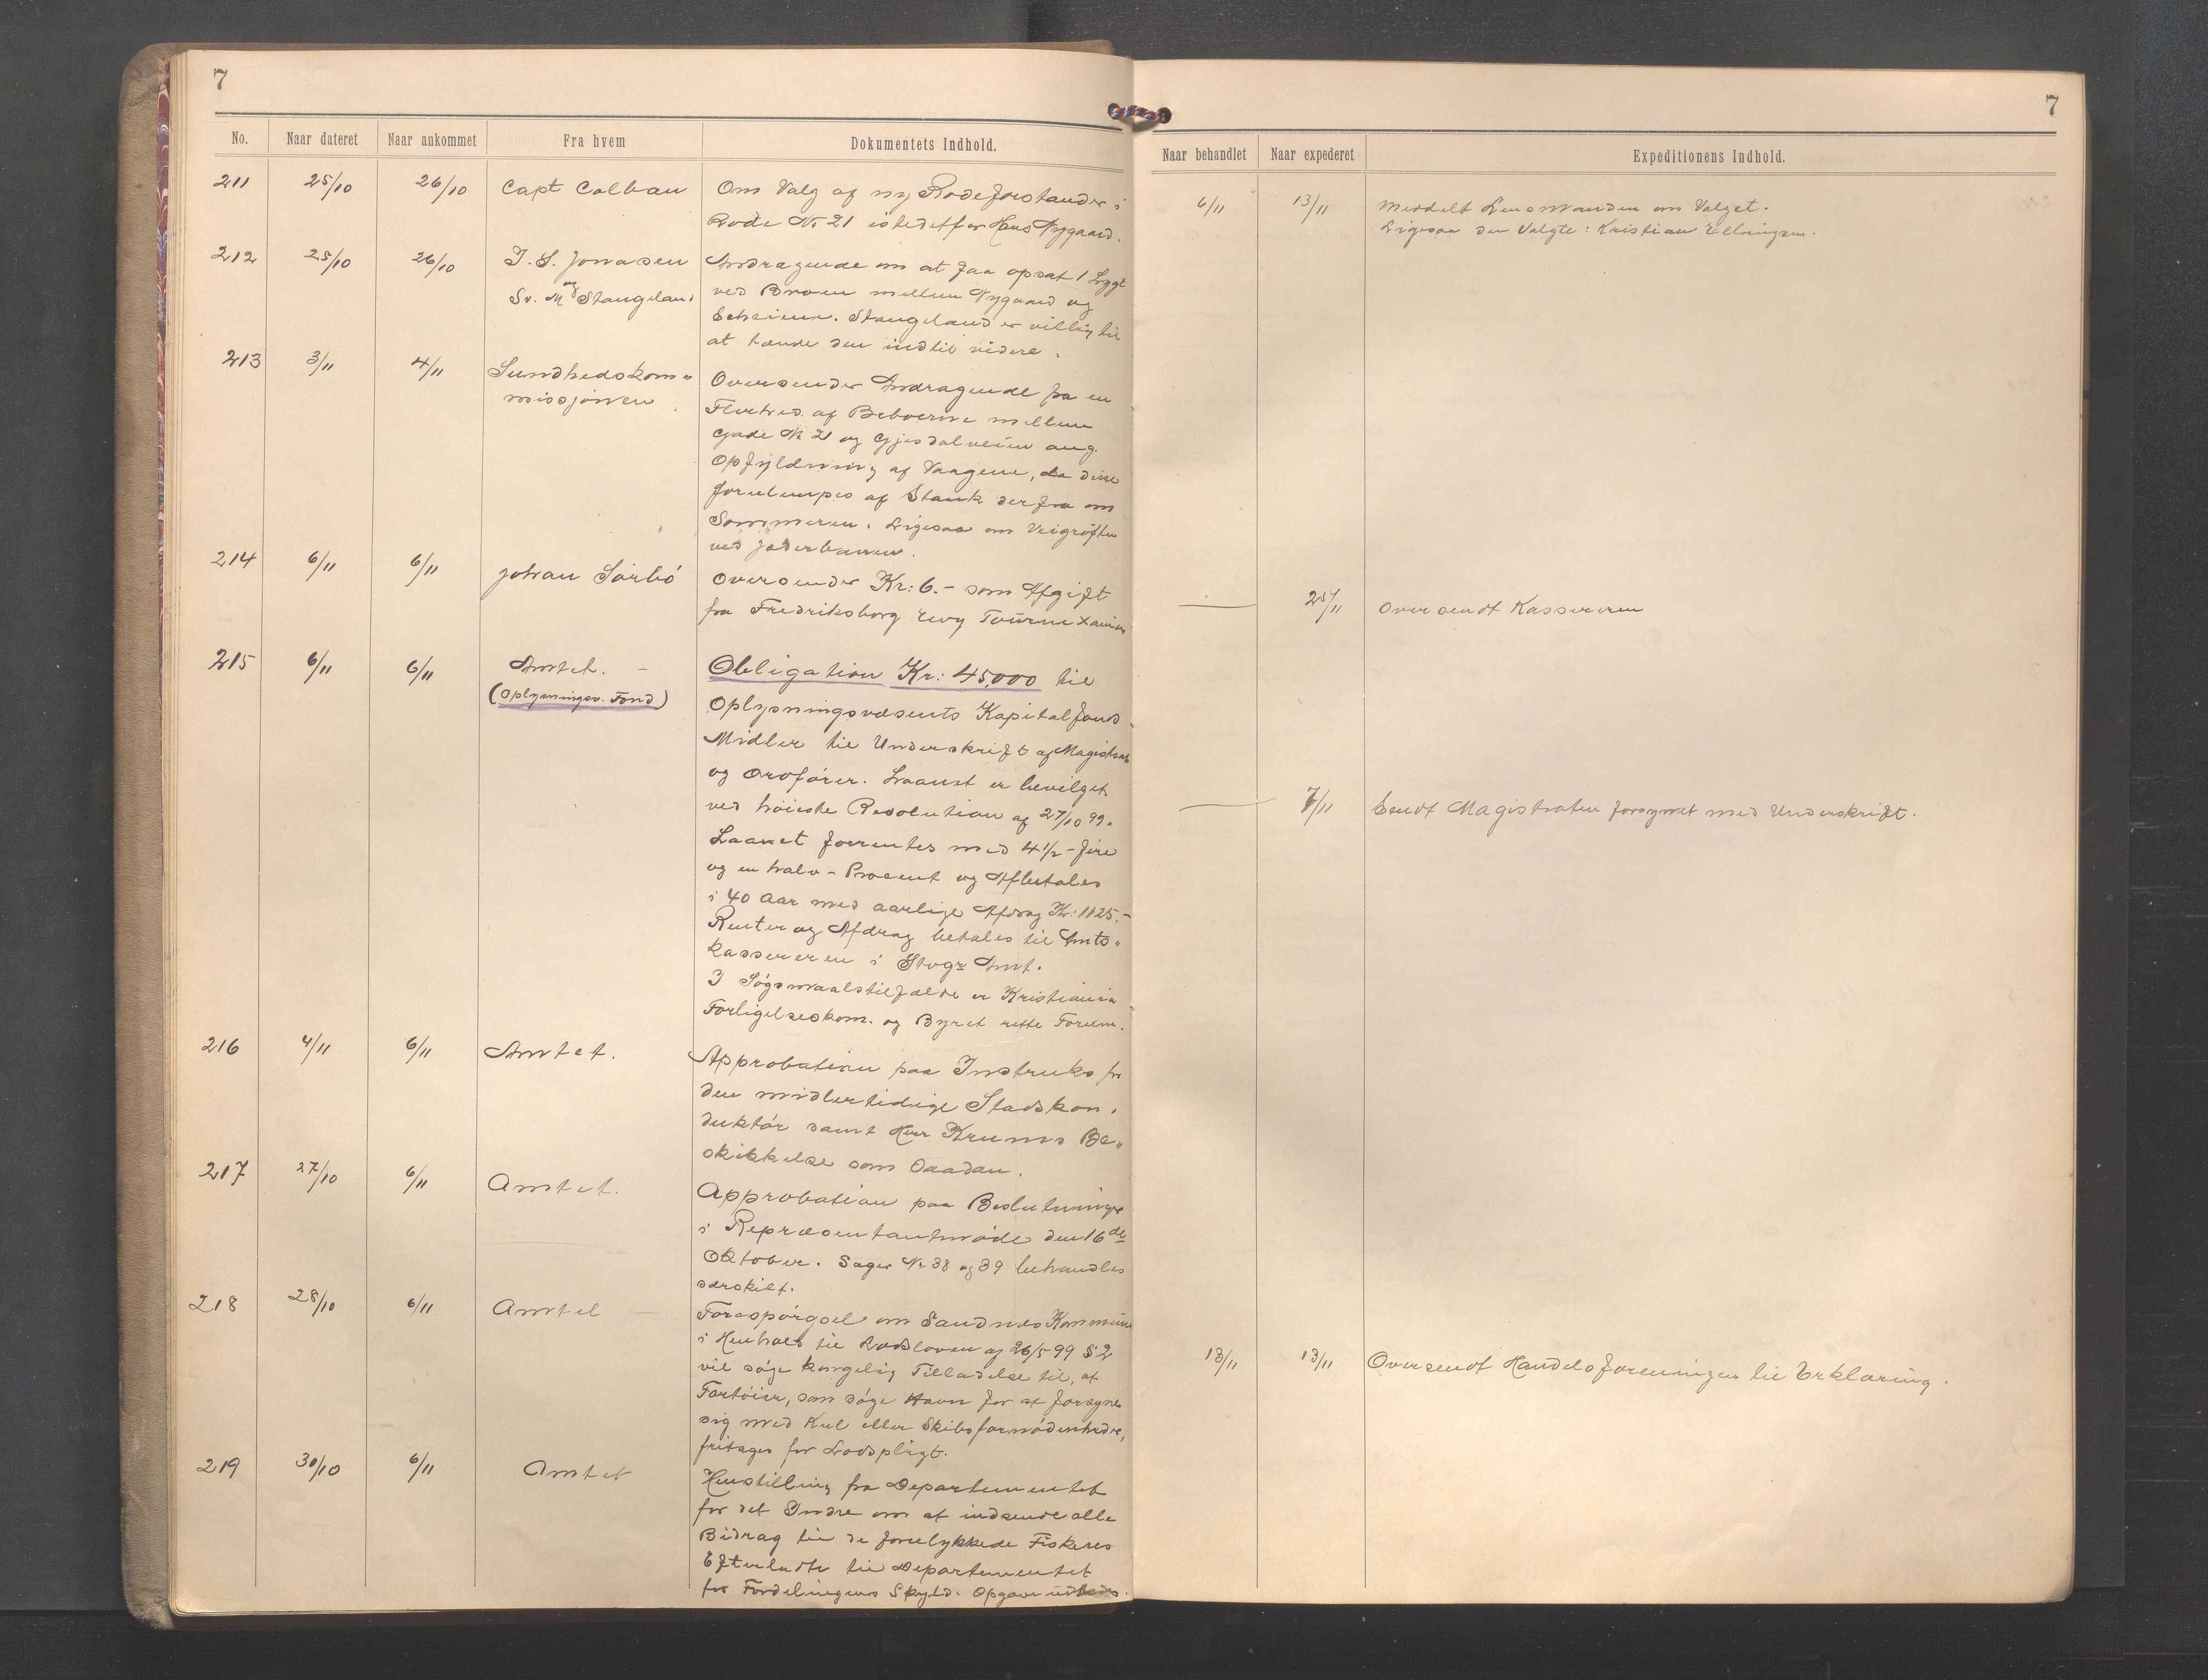 7
No. Naar dateret Naar ankommet Fra hvem Dokumentets Indhold.
211 25/10 26/10 Capt Colban Om Valg af ny Rodeforstander i
Rode No 21 istedetfor Hans Nygaard.
212 25/10 26/10 J. S. Jonasen Andragende om at faa opsat 1 Lygt
og
Sv. M Stangeland ved Broen mellem Nygaard og
Stangeland er villig til
at tænde den indtil videre.
213 3/11 4/11 Sundhedskom„ Oversender Andragende fra en
missjonen Flerhed af Beboerne mellem
Gade No 21 og Gjesdalveien ang.
Opfyldning af Vaagene, da disse
forulempes af Stank derfra om
Sommeren. Ligesaa om Veigrøften
ved Jæderbanen.
214 6/11 6/11 Johan Sørbö Oversender Kr: 6.- som Afgift
fra Fredriksborg
215 6/11 6/11 Amtet. - Obligation Kr: 45,000 til
(Oplysningsv. Fond) Oplysningsvæsents Kapitalfonds
Midler til Underskrift af Magistrat
og Ordfører. Laanet er bevilget
ved höieste Resolution af 27/10 99.
Laanet forrentes med 4 1/2 - fire
og en halv - Procent og Afbetales
i 40 Aar med aarlige Afdrag Kr: 1125,-
Renter og Afdrag betales til Amts„
kassereren i Stvgr Amt.
I Søgsmaalstilfælde er Kristiania
Forligelseskom. og Byret rette Forum.
216 4/11 6/11 Amtet. Approbation paa Instruks for
den midlertidige Stadskon„
duktør samt Herr Krums Be„
skikkelse som saadan.
217 27/10 6/11 Amtet. Approbation paa Beslutninger
i Repræsentantmøde den 16de
Oktober. Sager No 38 og 39 behandles
særskilt.
218 28/10 6/11 Amtet Forespørgsel om Sandnes Kommune
i Henhold til Lodsloven af 26/5 99 § 2
vil søge kongelig Tilladelse til, at
Fartøier, som søge Havn for at forsyne
sig med Kul eller Skibsfornødenheder,
fritages for Lodspligt.
219 30/10 6/11 Amtet Henstilling fra Departementet
for det Indre om at indsende alle
Bidrag til de forulykkede Fiskeres
Efterladte til Departementet
for Fordelingens Skyld. Opgave udbedes.
7
Naar behandlet Naar expederet Expeditionens Indhold.
6/11 13/11 Meddelt Lensmanden om Valget.
Ligesaa den Valgte: Kristian Ellingsen.
25/11 Oversendt Kassereren
7/11 Sendt Magistraten forsynet med Underskrift.
13/11 13/11 Oversendt Handelsforeningen til Erklæring.